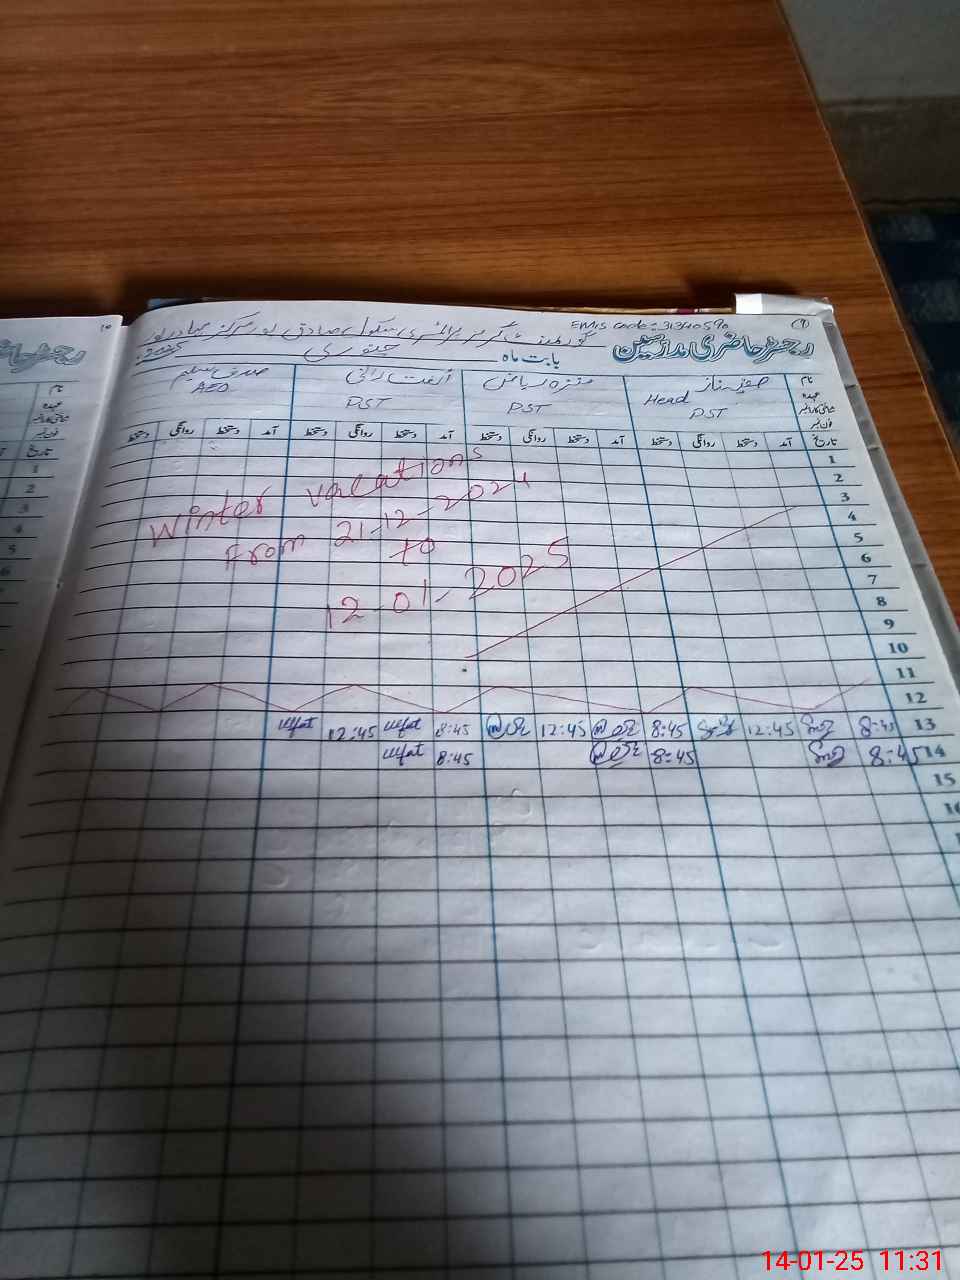 (9)
EMIS code: 31340590
گورنمنٹ گرلز پرائمری سکول صادق پور مرکز
رجسٹر حاضری مدرسین
بابت ماہ جنوری 2025
نام
صفیہ ناز
منزہ ریاض
الفت رانی
صدف سلیم
عہدہ
Head PST
PST
PST
AEO
تاریخ آمد دستخط روانگی دستخط آمد دستخط روانگی دستخط آمد دستخط روانگی دستخط آمد دستخط روانگی دستخط
1
2
3
4
5
6
7
8
9
10
11
12
Winter vacations
From 21-12-2024
to
12-01-2025
13 8:45 12:45 8:45 12:45 8:45 ulfat 12:45 ulfat
14 8:45 8:45 8:45 ulfat
15
10
رجسٹر حا
نام
عہدہ
تاریخ
1
2
3
4
5
6
14-01-25 11:31